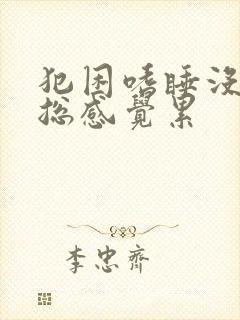 犯困嗜睡没
总感觉累
李忠齊